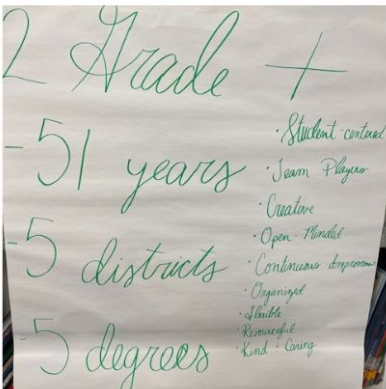 2 Grade +
-51 years
-5 districts
-5 degrees
· Student-centered
· Team Players
· Creative
· Open-Minded
· Continuous Improvem
· Organized
· flexible
· Resourceful
· Kind + Caring